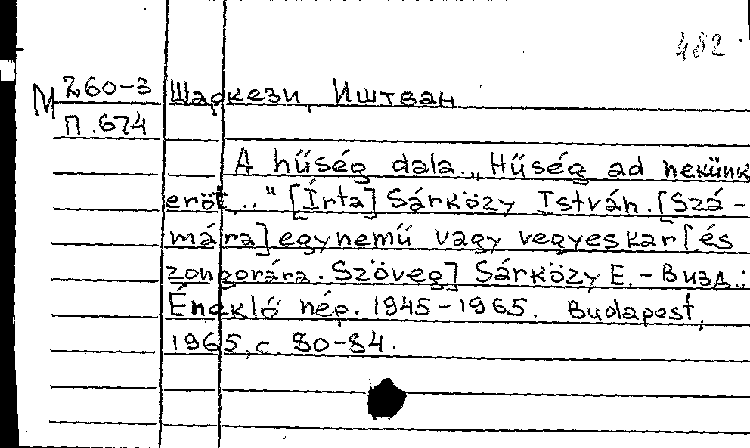 482
М 260-3 Шаркези, Иштван
П.674
A hűség dala. „Hűség ad nekünk
erőt..." [Írta] Sárközy István. [Szá-
mára] egynemű vagy vegyeskar [és
zongorára. Szöveg] Sárközy E. - В изд.:
Éneklő nép. 1945-1965. Budapest,
1965, с. 80-84.